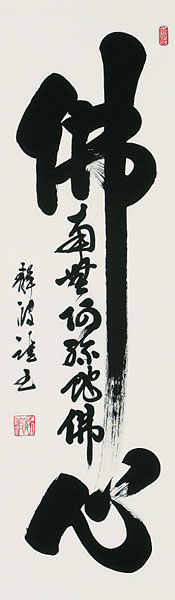 佛心
南無阿弥陀佛
静波謹書